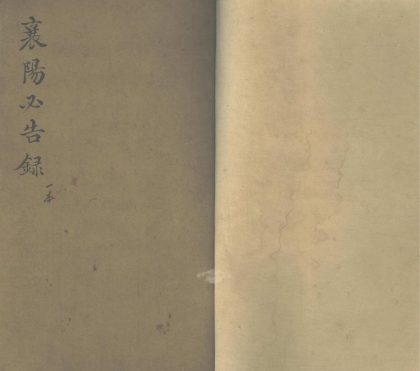 襄陽必告録
一本